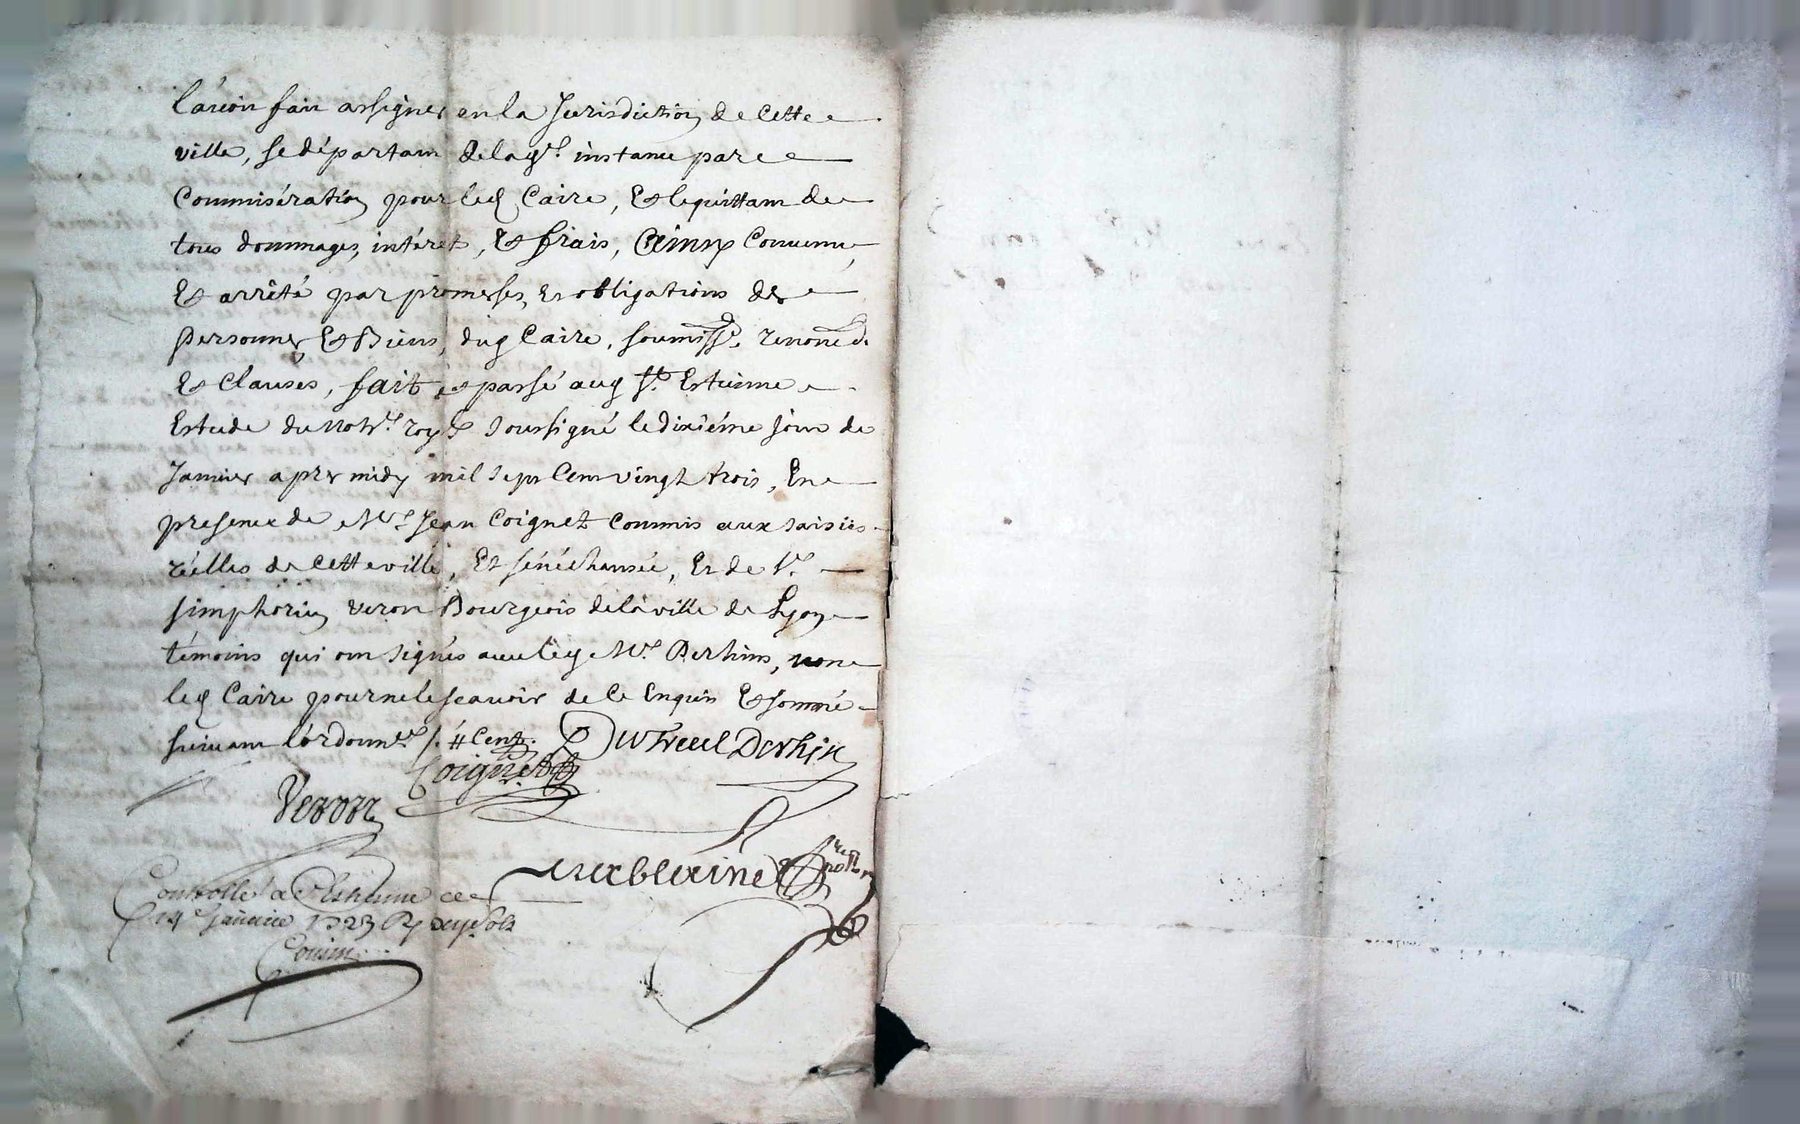 l'avoir fait assigner en la Jurisdiction de Cette
ville, se départant de lad.e instance par
Commisération pour led Caire, Et lequittant de
tous dommages, intérêt, Et frais, Ainsy Convenu,
Et arrêté par promesses, et obligations des
personnes, Et Biens, dud Caire, soumiss.s, renonc.
Et Clauses, fait, et passé aud St. Estienne
Estude du not.re royal soussigné le dixiéme jour de
Janvier apres midy mil sept Cent vingt trois, En
presence de Mr. Jean Coignet Commis aux saisies
réelles de cette ville, Et sénéchaussée, Et de Sr.
simphorien veron Bourgeois de la ville de Lyon
témoins qui ont signés avec led Mr. Dervins, non
led Caire pour ne le scavoir de Ce Enquis Et sommé
suivant l'ordonn.ce
Coignet
Veron
Controllé a St Estienne ce
14e Janvier 1723 Ry xij sols
Cousin